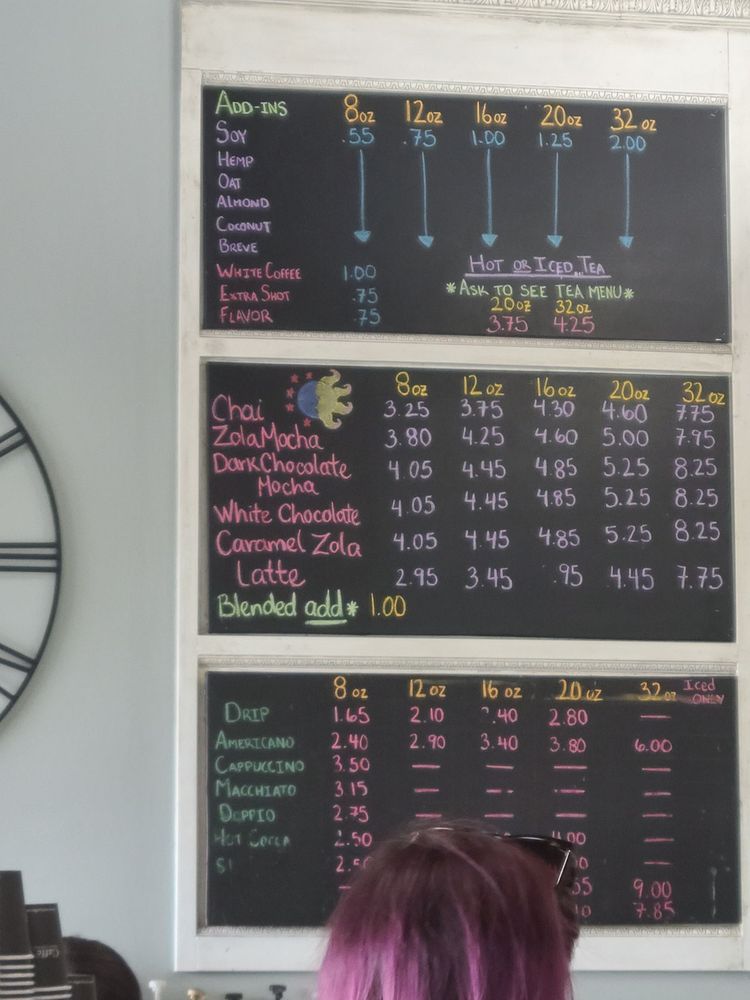 ADD-INS 8oz 12oz 16oz 20oz 32oz
SOY .55 .75 1.00 1.25 2.00
HEMP
OAT
ALMOND
COCONUT
BREVE
WHITE COFFEE 1.00
EXTRA SHOT .75
FLAVOR .75
HOT OR ICED TEA
*ASK TO SEE TEA MENU*
20oz 32oz
3.75 4.25
8oz 12oz 16oz 20oz 32oz
Chai 3.25 3.75 4.30 4.60 7.75
Zola Mocha 3.80 4.25 4.60 5.00 7.95
Dark Chocolate 4.05 4.45 4.85 5.25 8.25
Mocha
White Chocolate 4.05 4.45 4.85 5.25 8.25
Caramel Zola 4.05 4.45 4.85 5.25 8.25
Latte 2.95 3.45 .95 4.45 7.75
Blended add* 1.00
8oz 12oz 16oz 20oz 32oz Iced
ONLY
DRIP 1.65 2.10 .40 2.80 —
AMERICANO 2.40 2.90 3.40 3.80 6.00
CAPPUCCINO 3.50 — — — —
MACCHIATO 3.15 — — — —
DOPPIO 2.75 — — — —
HOT COCOA 2.50 4.00 —
2.50 —
9.00
7.85
Caffe